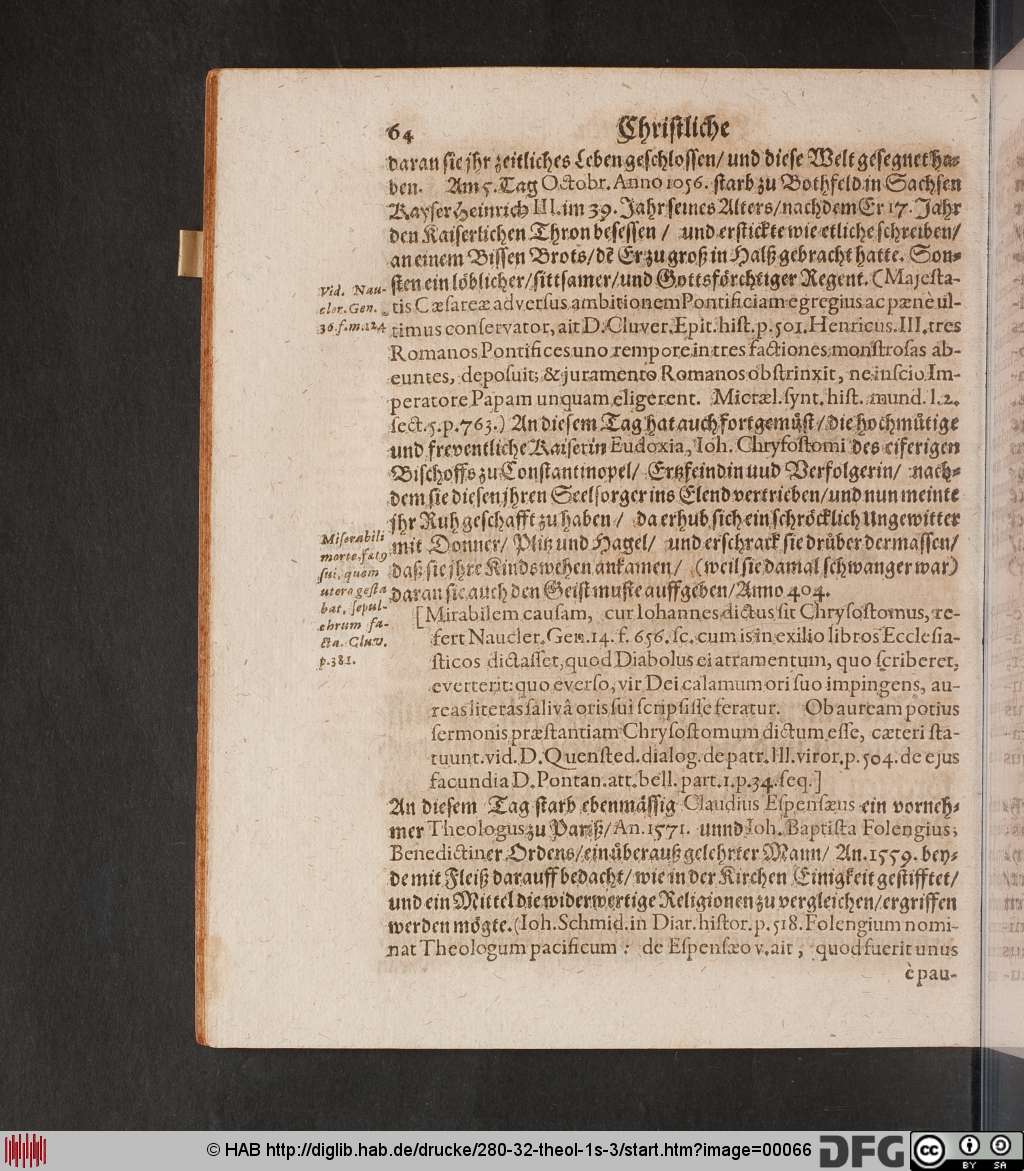 64 Christliche
daran sie jhr zeitliches Leben geschlossen/ und diese Welt gesegnet ha-
ben. Am 5. Tag Octobr. Anno 1056. starb zu Bothfeld in Sachsen
Kayser Heinrich III. im 39. Jahr seines Alters/ nachdem Er 17. Jahr
den Kaiserlichen Thron besessen / und erstickte wie etliche schreiben/
an einem Bissen Brots/ dē Er zu groß in Halß gebracht hatte. Son-
sten ein löblicher/ sittsamer/ und Gottsförchtiger Regent. (Majesta-
tis Cæsareæ adversus ambitionem Pontificiam egregius ac pænè ul-
timus conservator, ait D. Cluver. Epit. hist. p. 501. Henricus. III. tres
Romanos Pontifices uno tempore in tres factiones monstrosas ab-
euntes, deposuit; & juramento Romanos obstrinxit, ne inscio Im-
peratore Papam unquam eligerent. Micræl. synt. hist. mund. l. 2.
sect. 5. p. 763.) An diesem Tag hat auch fortgemüst/ die hochmütige
und freventliche Kaiserin Eudoxia, Ioh. Chrysostomi des eiferigen
Bischoffs zu Constantinopel/ Ertzfeindin uud Verfolgerin/ nach-
dem sie diesen jhren Seelsorger ins Elend vertrieben/ und nun meinte
jhr Ruh geschafft zu haben / da erhub sich ein schröcklich Ungewitter
mit Donner/ Plitz und Hagel/ und erschrack sie drüber dermassen/
daß sie jhre Kindswehen ankamen/ (weil sie damal schwanger war)
daran sie auch den Geist muste auffgeben/ Anno 404.
[Mirabilem causam, cur Iohannes dictus sit Chrysostomus, re-
fert Naucler. Gen. 14. f. 656. sc. cum is in exilio libros Ecclesia-
sticos dictasset, quod Diabolus ei atramentum, quo scriberet,
everterit: quo everso, vir Dei calamum ori suo impingens, au-
reas literas salivâ oris sui scripsisse feratur. Ob auream potius
sermonis præstantiam Chrysostomum dictum esse, cæteri sta-
tuunt. vid. D. Quensted. dialog. de patr. Ill. viror. p. 504. de ejus
facundia D. Pontan. att. bell. part. 1. p. 34. seq.]
An diesem Tag starb ebenmässig Claudius Espensæus ein vorneh-
mer Theologus zu Pariß/ An. 1571. unnd Joh. Baptista Folengius;
Benedictiner Ordens/ ein überauß gelehrter Mann/ An. 1559. bey-
de mit Fleiß darauff bedacht/ wie in der Kirchen Einigkeit gestifftet/
und ein Mittel die widerwertige Religionen zu vergleichen/ ergriffen
werden mögte. (Ioh. Schmid. in Diar. histor. p. 518. Folengium nomi-
nat Theologum pacificum : de Espensæo v. ait, quod fuerit unus
è pau-
Vid. Nau-
cler. Gen.
36. f. m. 124
Miserabili
morte. fœtus
sui, quem
utero gesta
bat, sepul-
chrum fa-
cta. Cluv.
p. 381.
© HAB http://diglib.hab.de/drucke/280-32-theol-1s-3/start.htm?image=00066
DFG
cc
BY SA